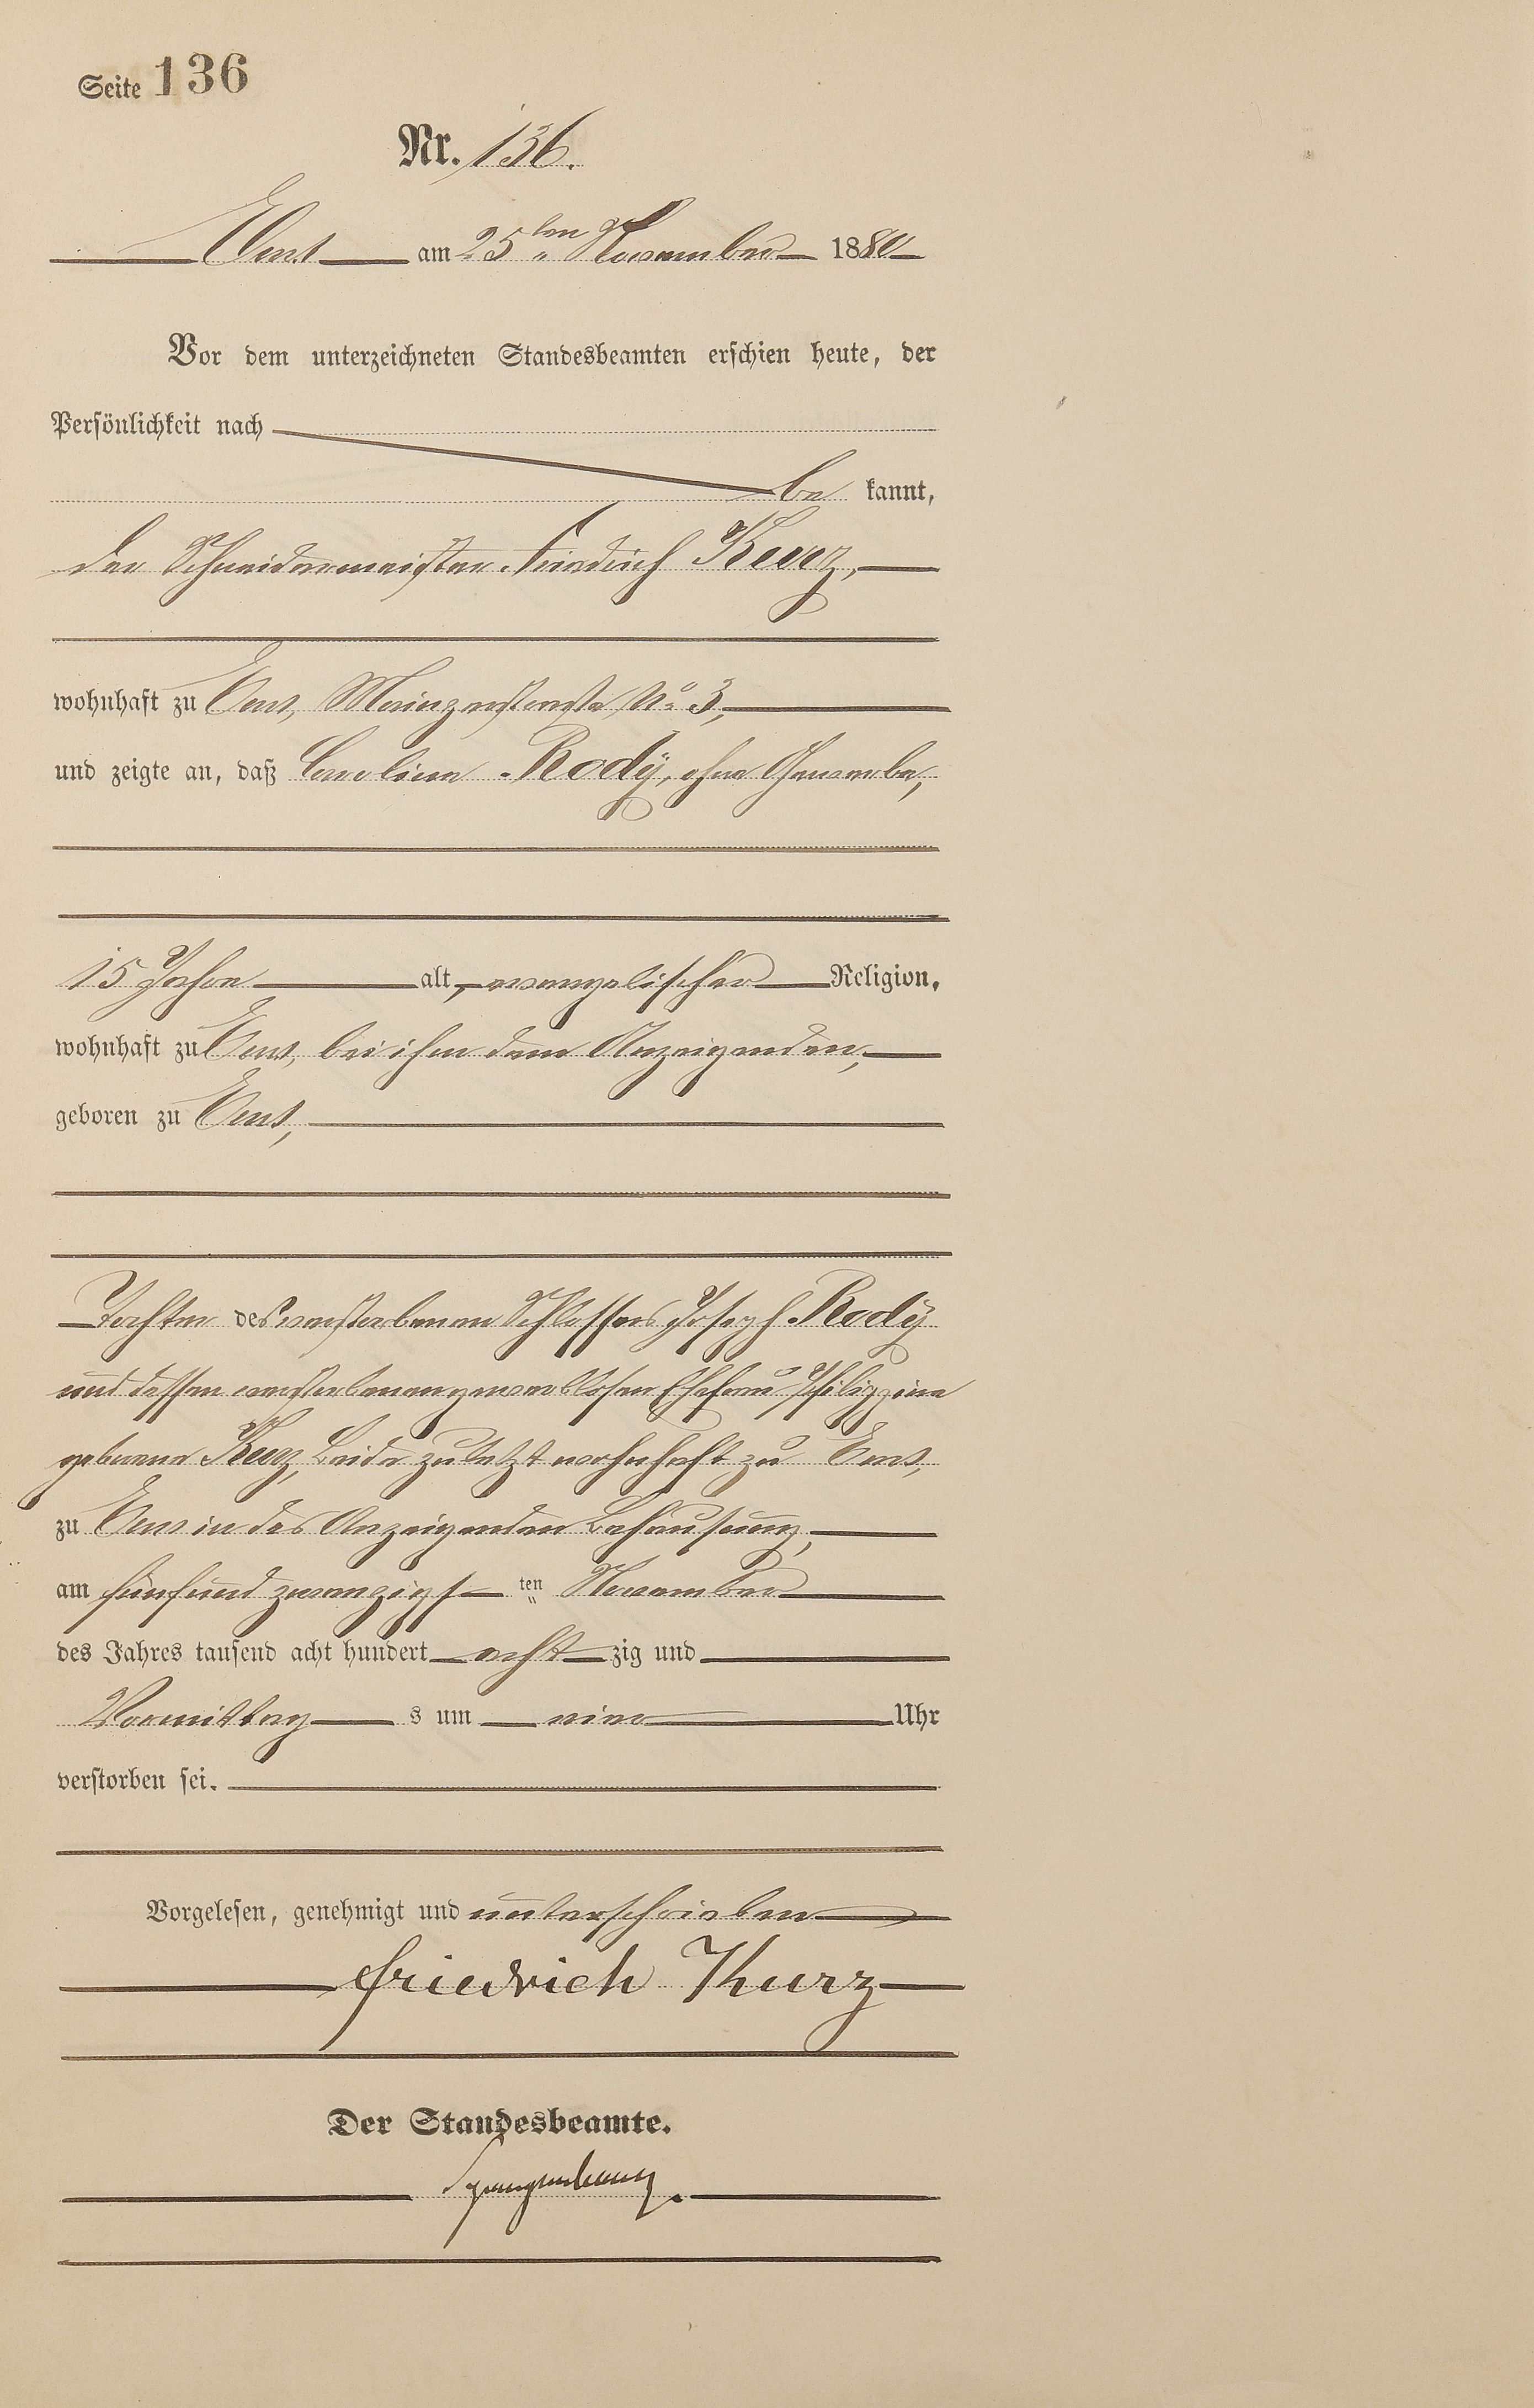 Seite 136
Nr. 136.
Ems am 25ten November 1880
Vor dem unterzeichneten Standesbeamten erschien heute, der
Persönlichkeit nach
be kannt,
der Schneidermeister Friedrich Kurz,
wohnhaft zu Ems, Mainzerstraße No 3,
und zeigte an, daß Caroline Rody, ohne Gewerbe,
15 Jahre alt, evangelischer Religion,
wohnhaft zu Ems, bei ihm dem Anzeigenden,
geboren zu Ems,
Tochter des verstorbenen Schlossers Joseph Rody
und dessen verstorbenen gewerblosen Ehefrau Philippine
geborene Kurz, Beide zuletzt wohnhaft zu Ems,
zu Ems in des Anzeigenden Behausung,
am fünfund zwanzigs ten November
des Jahres tausend acht hundert acht zig und
Vormittag s um Uhr
verstorben sei.
Vorgelesen, genehmigt und unterschrieben
Friedrich Kurz
Der Standesbeamte.
Spangenberg.